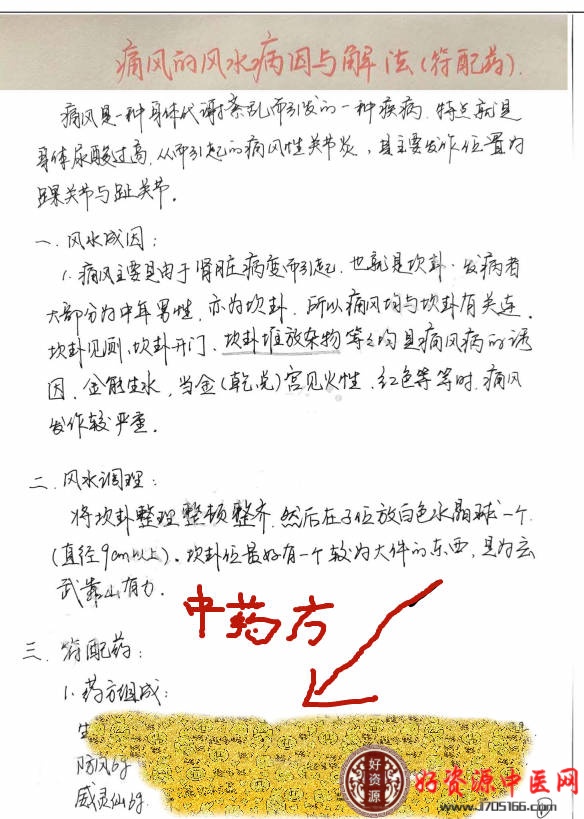 痛风的风水病因与解法(符配药).
痛风是一种身体代谢紊乱而引发的一种疾病.特点就是
身体尿酸过高,从而引起的痛风性关节炎,其主要发作位置为
踝关节与趾关节.
一、风水成因:
1.痛风主要是由于肾脏病变而引起.也就是坎卦.发病者
大部分为中年男性,亦为坎卦.所以痛风均与坎卦有关连.
坎卦见厕、坎卦开门、坎卦堆放杂物等之均是痛风病的诱
因.金能生水,当金(乾兑)宫见火性、红色等等时.痛风
发作较严重.
二.风水调理:
将坎卦整理整顿整齐.然后在子位放白色水晶球一个.
(直径9cm以上).坎卦位最好有一个较为大件的东西,是为玄
武靠山有力.
中药方
三.符配药:
1.药方组成:
生
防风6g
威灵仙6g
好资源
好资源中医网
www.j705166.com